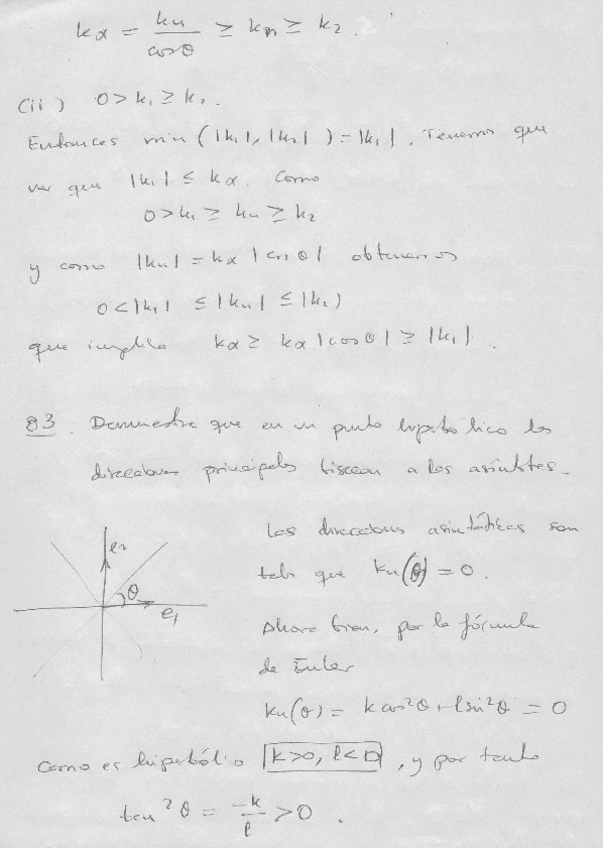 kα = kn / cosθ ≥ kn ≥ k2.
(ii) 0 > k1 ≥ k2.
Entonces min (|k1|, |k2|) = |k1|. Tenemos que
ver que |k1| ≤ kα. Como
0 > k1 ≥ kn ≥ k2
y como |kn| = kα |cos θ| obtenemos
0 < |k1| ≤ |kn| ≤ |k2|
que implica kα ≥ kα |cos θ| ≥ |k1|.
83. Demuestra que en un punto hiperbólico las
direcciones principales bisecan a las asíntotas.
Las direcciones asintóticas son
tales que kn(θ) = 0.
Ahora bien, por la fórmula
de Euler
kn(θ) = k cos²θ + l sin²θ = 0
e2
θ
e1
Como es hiperbólico k>0, l<0, y por tanto
tan²θ = -k / l > 0.